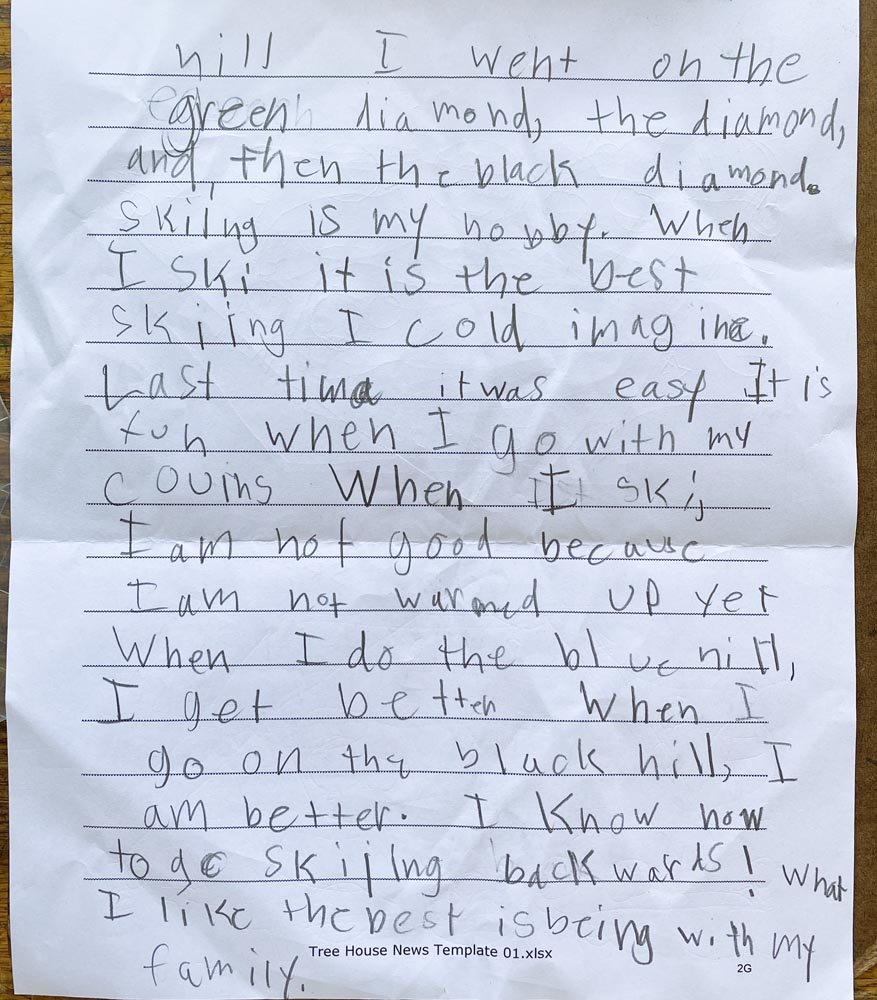 hill I went on the
green diamond, the diamond,
and then the black diamond.
skiing is my hobby. When
I ski it is the best
skiing I cold imagine.
Last time it was easy It is
fun when I go with my
couins When I ski,
I am not good because
I am not warmed up yet
When I do the blue hill,
I get better When I
go on the black hill, I
am better. I know how
to go skiing backwards! What
I like the best is being with my
family.
Tree House News Template 01.xlsx
2G